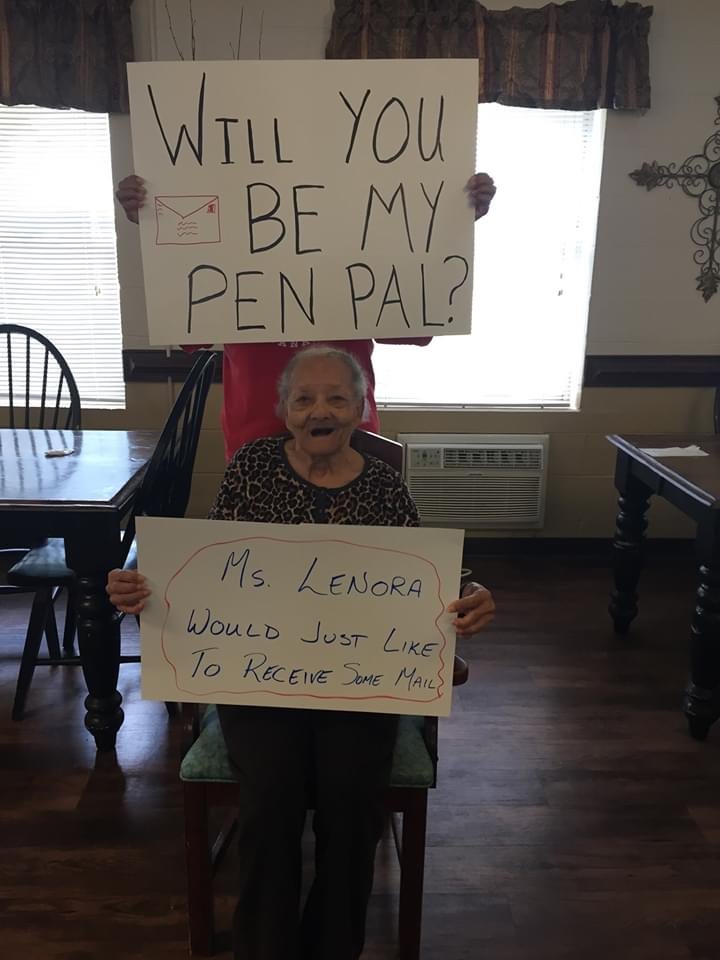 WILL YOU
BE MY
PEN PAL?
MS. LENORA
WOULD JUST LIKE
TO RECEIVE SOME MAIL